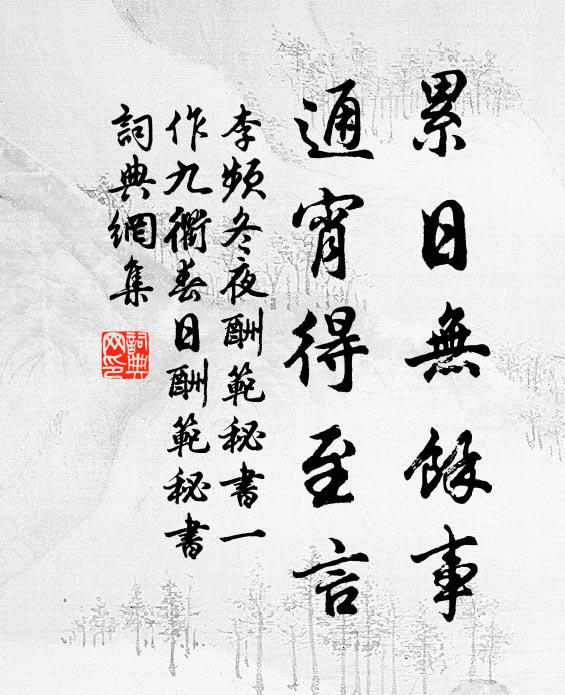 累日無餘事
通宵得至言
李频冬夜酬範秘書一
作九衢春日酬範秘書
詞典網集
詞典
网印